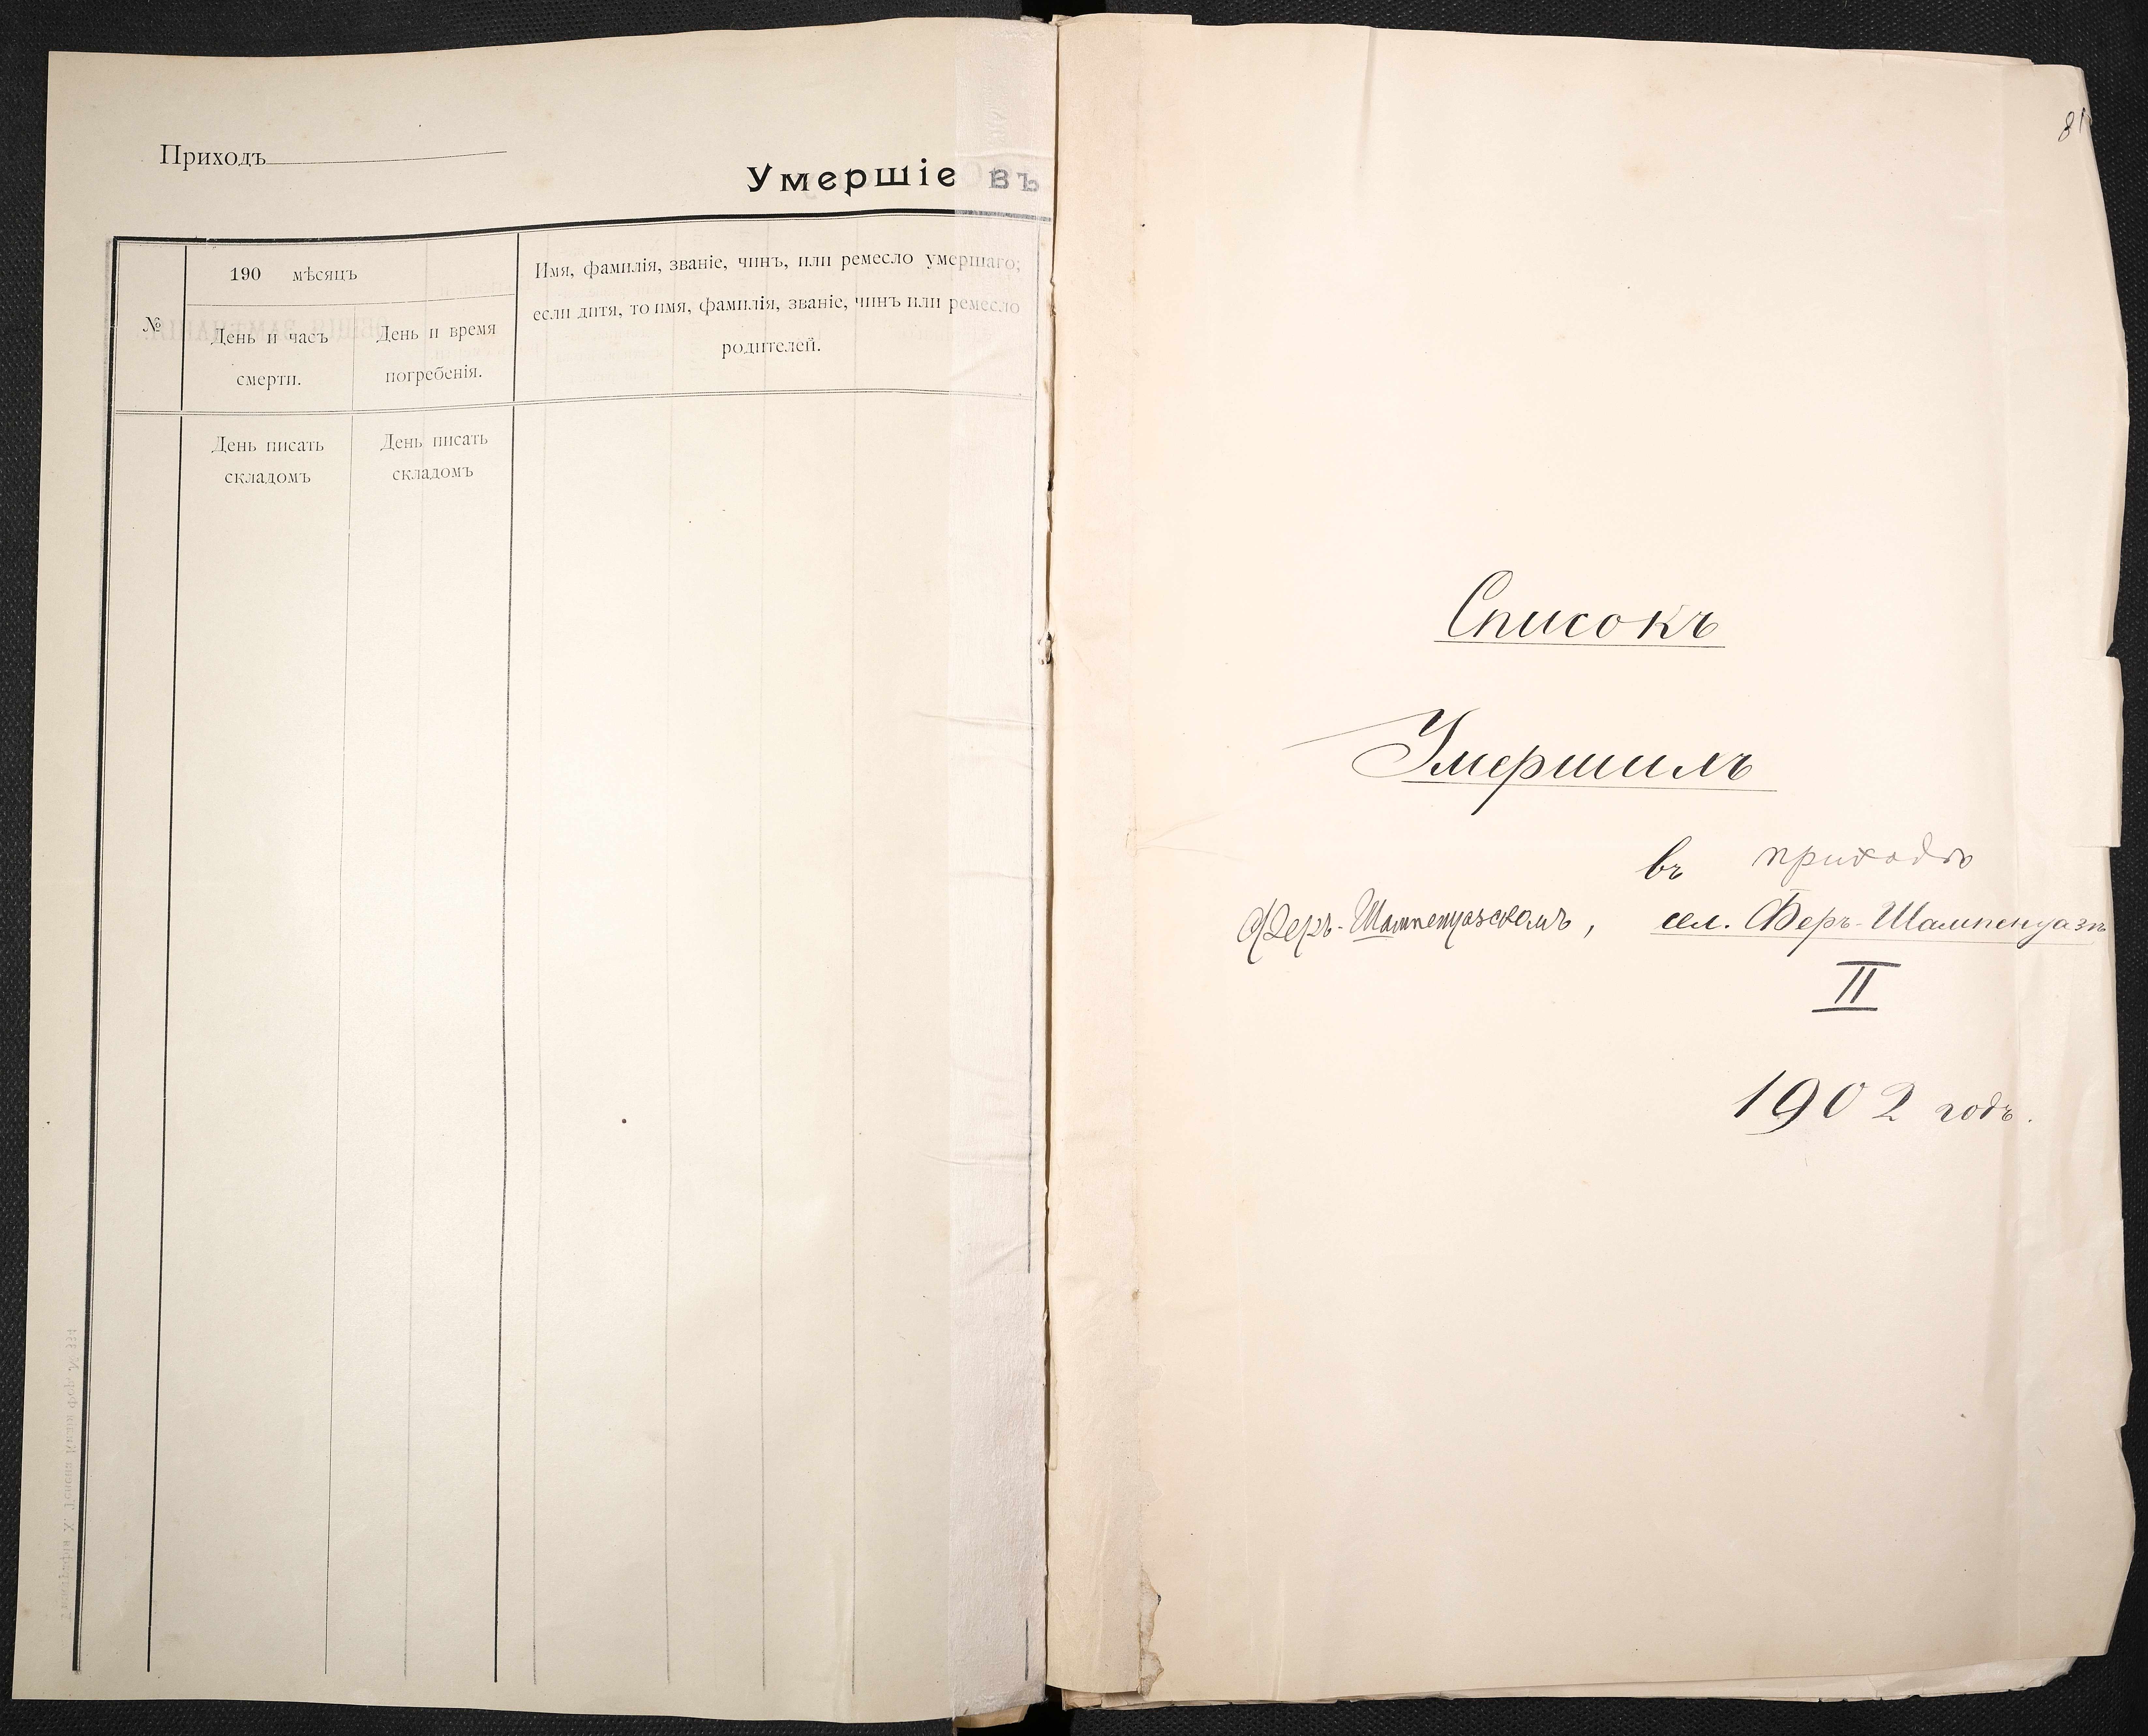 Приходъ
Умершіе въ
№
190 мѣсяцъ
День и часъ
смерти.
День и время
погребенія.
Имя, фамилія, званіе, чинъ, или ремесло умершаго;
если дитя, то имя, фамилія, званіе, чинъ или ремесло
родителей.
День писать
складомъ
День писать
складомъ
81
Списокъ
Умершимъ
въ приходѣ
Феръ-Шампенуазскомъ, сел. Феръ-Шампенуазъ
II
1902 годъ.